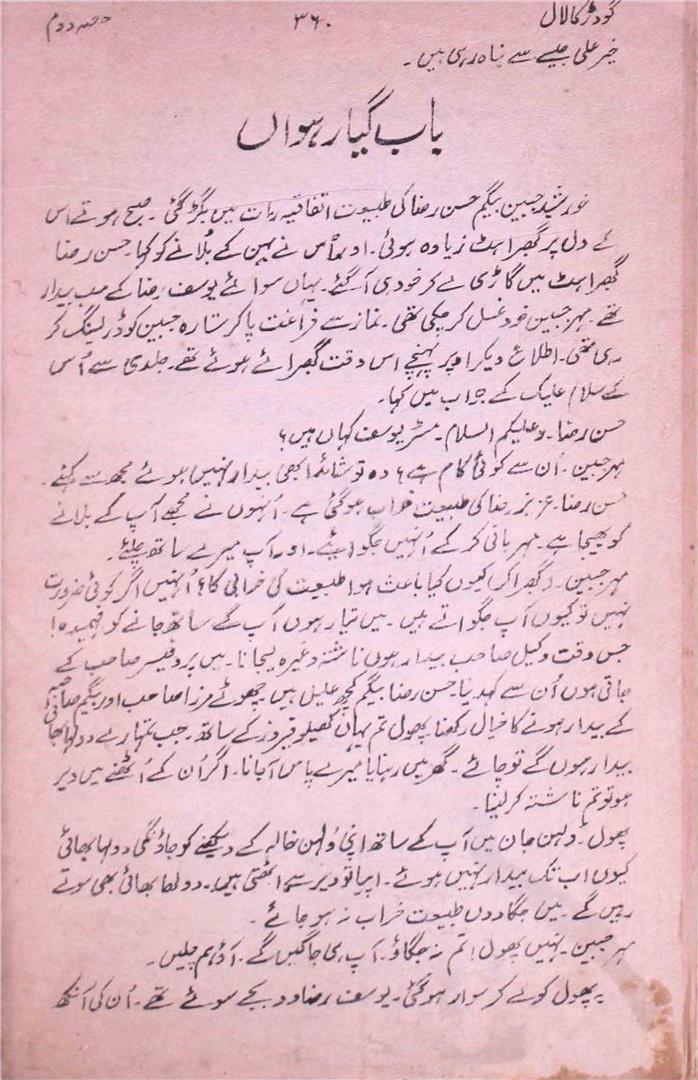 گودڑ کا لال ۳۶۰ حصہ دوم
خیر علی جیسے سے نباہ رہی ہیں۔
باب گیارہواں
خورشید جبین بیگم حسن رضا کی طبیعت اتفاقیہ رات میں بگڑ گئی۔ صبح ہوتے اس
کے دل پر گھبراہٹ زیادہ ہوئی۔ اور اُس نے بہن کے بُلانے کو کہا حسن رضا
گھبراہٹ میں گاڑی لے کر خود ہی آ گئے۔ یہاں سوائے یوسف رضا کے سب بیدار
تھے۔ مہر جبین خود غسل کر چکی تھی۔ نماز سے فراغت پا کر ستارہ جبین کو ڈریسنگ کر
رہی تھی۔ اطلاع دیکر اوپر پہنچے اس وقت گھبرائے ہوئے تھے۔ جلدی سے اُس
کے سلام علیک کے جواب میں کہا۔
حسن رضا۔ وعلیکم السلام۔ مسٹر یوسف کہاں ہیں؟
مہر جبین۔ اُن سے کوئی کام ہے؟ وہ تو شائد ابھی بیدار نہیں ہوئے مجھ سے کہئے۔
حسن رضا۔ عزیز رضا کی طبیعت خراب ہو گئی ہے۔ اُنہوں نے مجھے آپ کے بلانے
کو بھیجا ہے۔ مہربانی کر کے اُنہیں جگوائیے۔ اور آپ میرے ساتھ چلئے۔
مہر جبین۔ (گھبرا کر) کیوں کیا باعث ہوا طبیعت کی خرابی کا؟ اُنہیں اگر کوئی ضرورت
نہیں تو کیوں آپ جگواتے ہیں۔ میں تیار ہوں آپ کے ساتھ جانے کو فہمیدہ!
جس وقت وکیل صاحب بیدار ہوں ناشتہ وغیرہ لیجانا۔ میں پروفیسر صاحب کے
جاتی ہوں اُن سے کہدینا حسن رضا بیگم کچھ علیل ہیں چھوٹے مرزا صاحب اور بیگم صاحبہ
کے بیدار ہونے کا خیال رکھنا پھول تم یہاں کھیلو فیروز کے ساتھ۔ جب تمہارے دولہا بھائی
بیدار ہوں گے تو چائے۔ گھر میں رہنا یا میرے پاس آجانا۔ اگر اُن کے اُٹھنے میں دیر
ہو تو تم ناشتہ کر لینا۔
پھول۔ دلہن جان میں آپ کے ساتھ اپنی دُلہن خالہ کے دیکھنے کو جاؤنگی دولہا بھائی
کیوں اب تک بیدار نہیں ہوئے۔ اپیا تو دیر سے اُٹھتی ہیں۔ دولھا بھائی بھی سوتے
رہیں گے۔ میں جگا دوں طبیعت خراب نہ ہو جائے۔
مہر جبین۔ نہیں پھول! تم نہ جگاؤ۔ آپ ہی جاگیں گے۔ آؤ ہم چلیں۔
یہ پھول کو لے کر سوار ہو گئی۔ یوسف رضا دو بجے سوئے تھے۔ اُن کی آنکھ